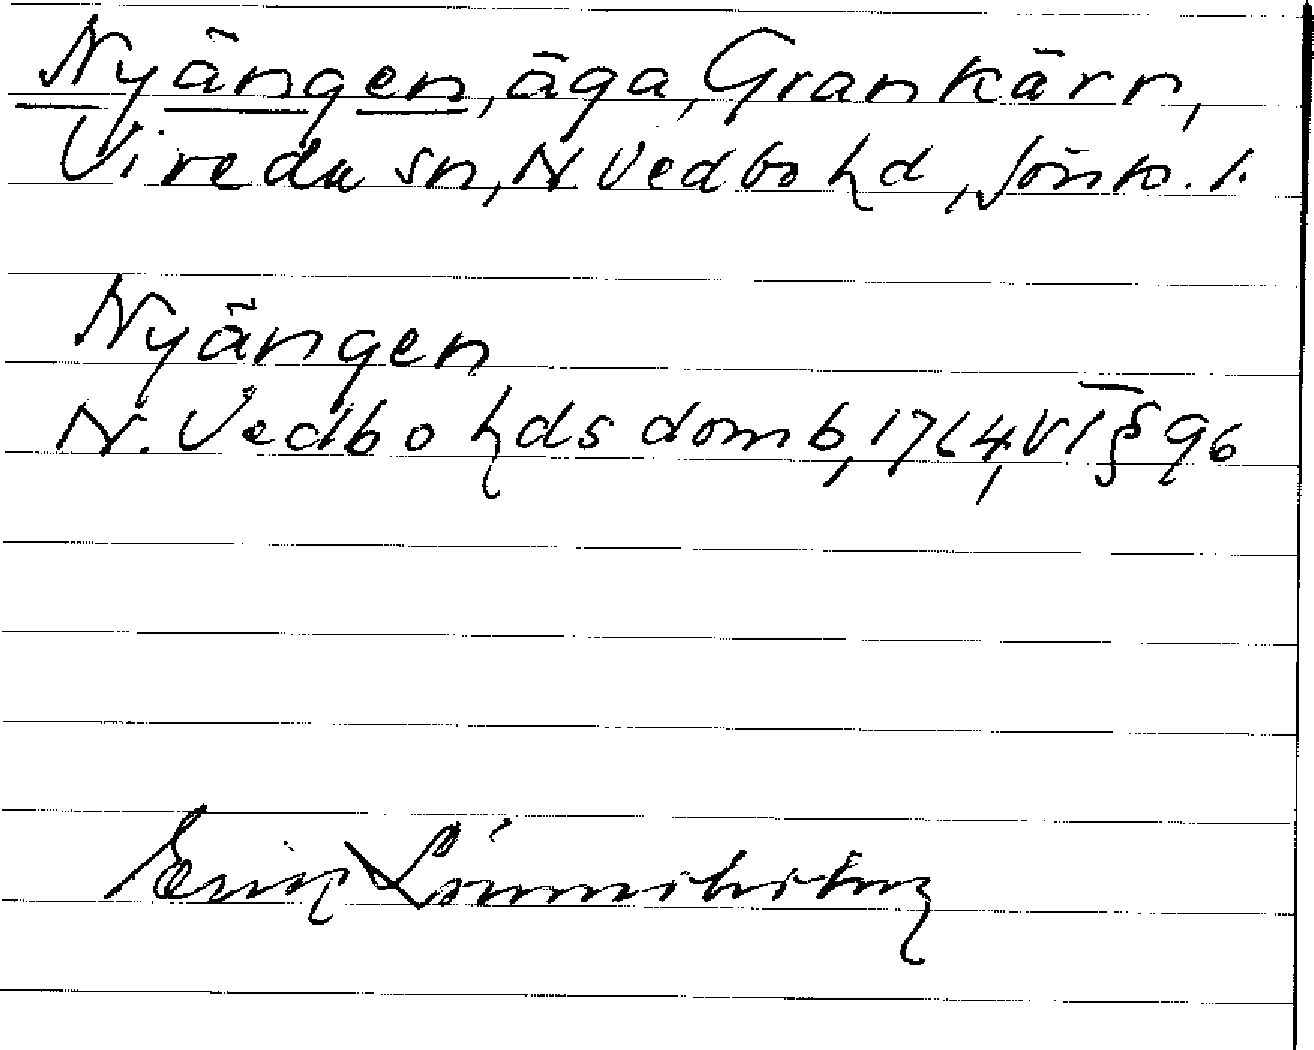 Nyängen, äga, Grankärr,
Vireda sn, N Vedbo hd, Jönk. l.
Nyängen
N. Vedbo hds domb, 1764, VI § 96